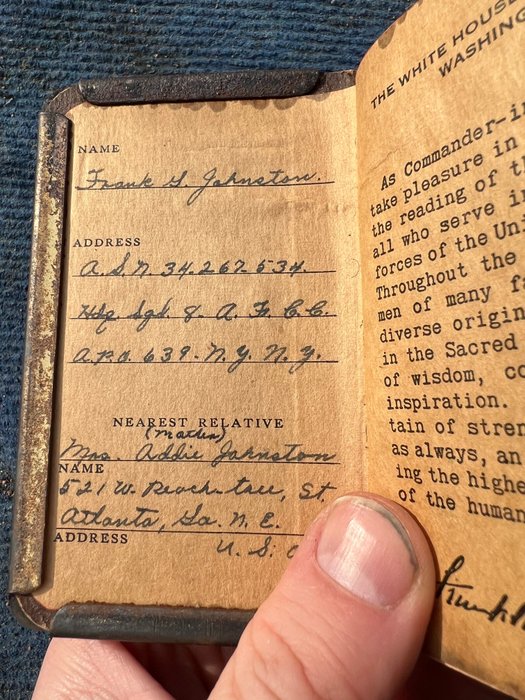 NAME
Frank G. Johnston.
ADDRESS
A.S.N 34.267.534.
Hdq Sqd. 8. A. F. C. C.
A.P.O. 639. N.Y. N.Y.
NEAREST RELATIVE
(Mother)
Mrs. Addie Johnston
NAME
521 W. Peach-tree, St.
Atlanta, Ga. N. E.
ADDRESS
U. S.
THE WHITE HOUSE
WASHING
As Commander-i
take pleasure in
the reading of t
all who serve i
forces of the Uni
Throughout the
men of many fa
diverse origin
in the Sacred
of wisdom, co
inspiration.
tain of stren
as always, an
ing the highe
of the human